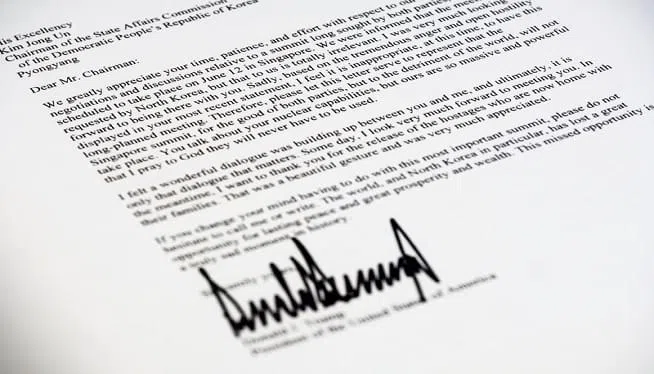 His Excellency
Kim Jong Un
Chairman of the State Affairs Commission
of the Democratic People's Republic of Korea
Pyongyang
Dear Mr. Chairman:
We greatly appreciate your time, patience, and effort with respect to our
negotiations and discussions relative to a summit long sought by both parties,
scheduled to take place on June 12 in Singapore. We were informed that the meeting
requested by North Korea, but that to us is totally irrelevant. I was very much
forward to being there with you. Sadly, based on the tremendous anger and open hostility
displayed in your most recent statement, I feel it is inappropriate, at this time, to have this
long-planned meeting. Therefore, please let this letter serve to represent that the
Singapore summit, for the good of both parties, but to the detriment of the world, will not
take place. You talk about your nuclear capabilities, but ours are so massive and powerful
that I pray to God they will never have to be used.
I felt a wonderful dialogue was building up between you and me, and ultimately, it is
only that dialogue that matters. Some day, I look very much forward to meeting you. In
the meantime, I want to thank you for the release of the hostages who are now home with
their families. That was a beautiful gesture and was very much appreciated.
If you change your mind having to do with this most important summit, please do not
hesitate to call me or write. The world, and North Korea in particular, has lost a great
opportunity for lasting peace and great prosperity and wealth. This missed opportunity is
a truly sad moment in history.
Sincerely yours,
Donald J. Trump
President of the United States of America